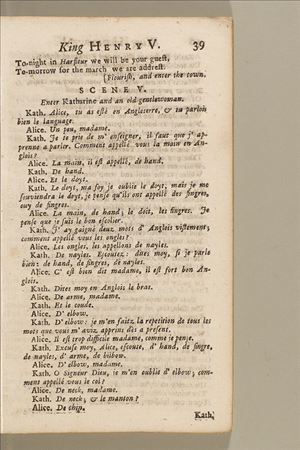 King HENRY V. 39
To-night in Harfleur we will be your guest,
To-morrow for the march we are addrest.
[Flourish, and enter the town.
SCENE V.
Enter Katharine and an old gentlewoman.
Kath. Alice, tu as esté en Angleterre, & tu parlois
bien le language.
Alice. Un peu, madame.
Kath. Je te prie de m' enseigner, il faut que j' ap-
prenne a parler. Comment appellé vous la main en An-
glois?
Alice. La main, il est appellé, de hand.
Kath. De hand.
Alice. Et le doyt.
Kath. Le doyt, ma foy je oublie le doyt; mais je me
souviendra le doyt, je pense qu'ils ont appellé des fingres,
ouy de fingres.
Alice. La main, de hand; le doit, les fingres. Je
pense que je suis le bon escolier.
Kath. J' ay gaigné deux mots d' Anglois vistement;
comment appellé vous les ongles?
Alice. Les ongles, les appellons de nayles.
Kath. De nayles. Escoutez: dites moy, si je parle
bien: de hand, de fingres, de nayles.
Alice. C' est bien dit madame, il est fort bon An-
glois.
Kath. Dites moy en Anglois le bras.
Alice. De arme, madame.
Kath. Et le coude.
Alice. D' elbow.
Kath. D' elbow: je m'en faitz la repetition de tous les
mots que vous m' avez apprins dès a present.
Alice. Il est trop difficile madame, comme je pense.
Kath. Excuse moy, Alice, escoute, d' hand, de fingre,
de nayles, d' arme, de bilbow.
Alice. D' elbow, madame.
Kath. O Signeur Dieu, je m'en oublié d' elbow; com-
ment appellé vous le col?
Alice. De neck, madame.
Kath. De neck; & le manton?
Alice. De chin.
Kath.